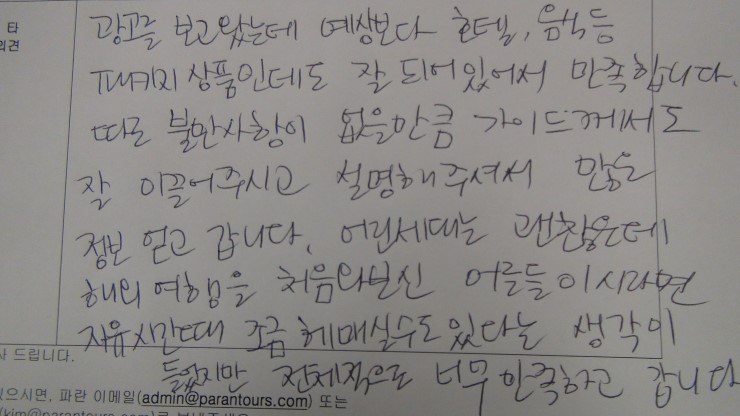 타
의견
광고를 보고왔는데 예상보다 호텔, 음식등
패키지 상품인데도 잘 되어있어서 만족합니다.
따로 불만사항이 없을만큼 가이드께서도
잘 이끌어주시고 설명해주셔서 많은
정보 얻고 갑니다. 어린세대는 괜찮은데
해외 여행을 처음와보신 어르들이시라면
자유시간때 조금 헤매실수도 있다는 생각이
들었지만 전체적으로 너무 만족하고 갑니다
사 드립니다.
있으시면, 파란 이메일(admin@parantours.com) 또는
(kim@parantours.com)로 보내주세요